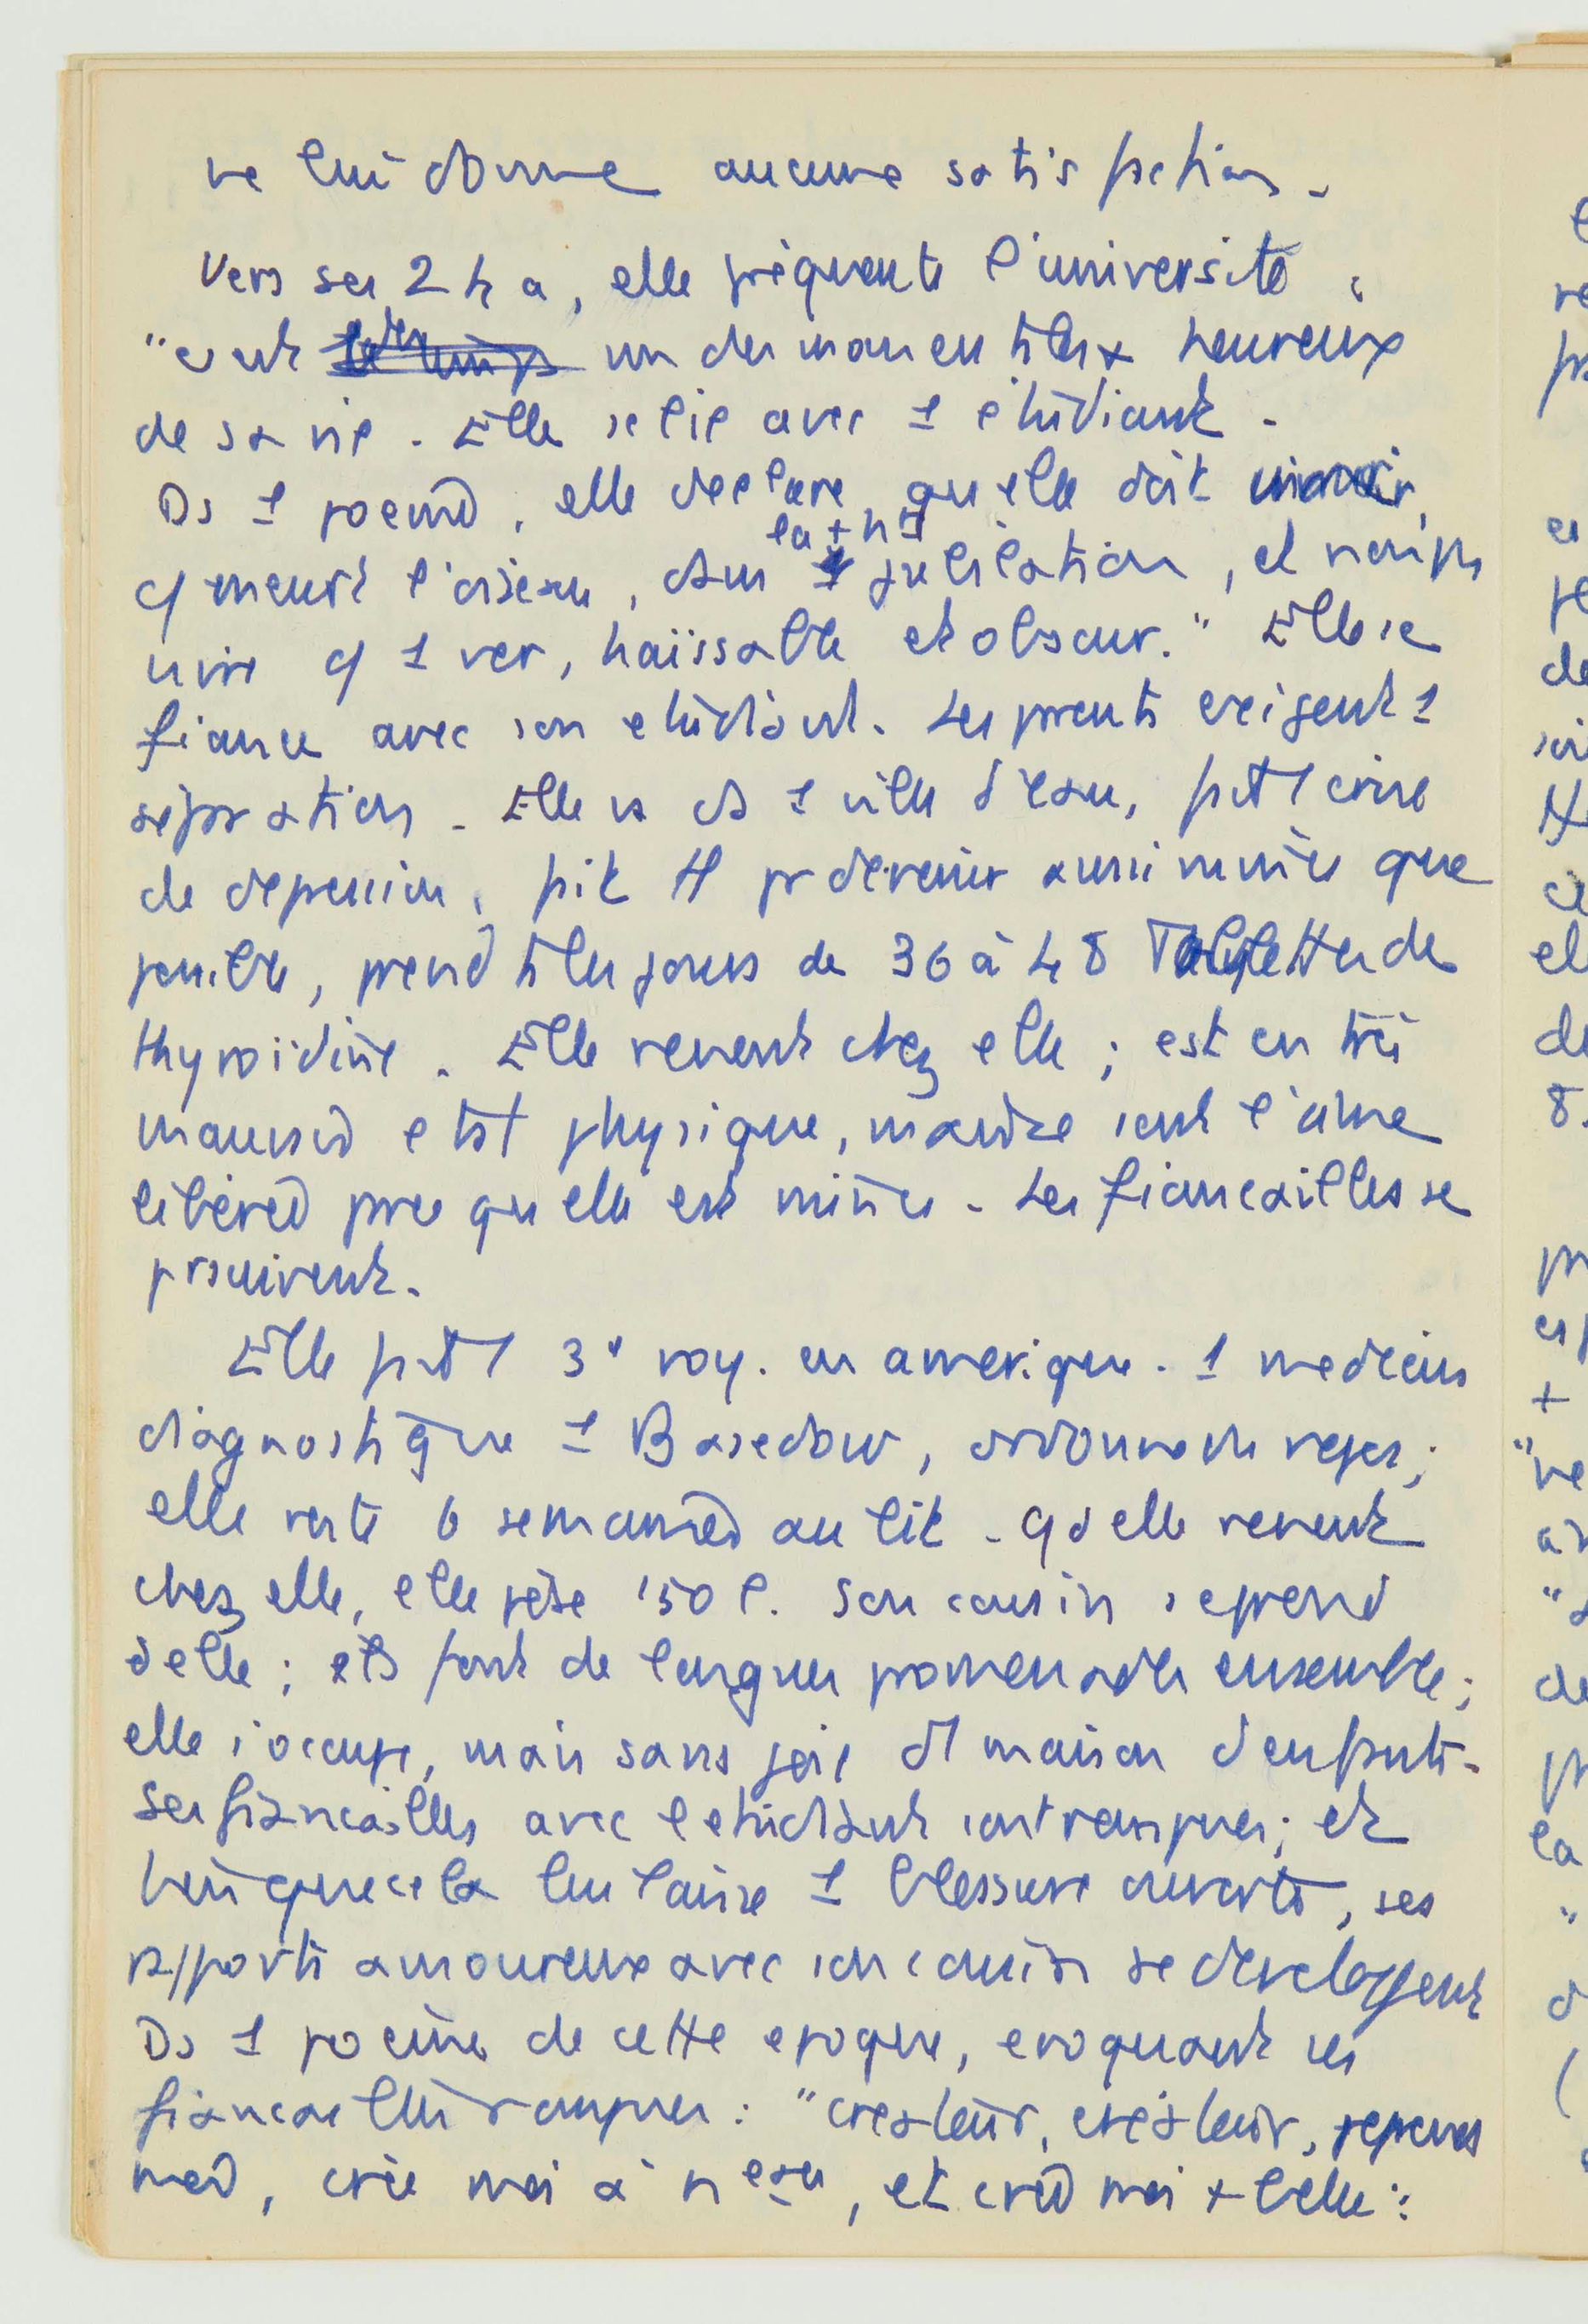 ne lui donne aucune satisfaction.
Vers ses 24 a, elle fréquente l'université.
"c'est un des moments les + heureux
de sa vie. Elle se lie avec 1 étudiant.
Ds 1 poème, elle declare qu'elle doit mourir,
la + h
q meurt l'oiseau, dans jubilation, et non pas
vivre q 1 ver, haïssable et obscur." Elle se
fiance avec son etudiant. Les parents exigent 1
séparation. Elle va ds 1 ville d'eau, fait 1 crise
de depression, fait tt pr devenir aussi mince que
possible, prend ts les jours de 36 à 48 Tablettes de
thyroidine. Elle revient chez elle ; est en très
mauvais etat physique, mais se sent l'âme
libérée parce qu'elle est mince. Les fiancailles se
prsuivent.
Elle fait 1 3e voy. en amerique. 1 medecin
diagnostique 1 Basedow, ordonne du repos ;
elle reste 6 semaines au lit. Qd elle revient
chez elle, elle pèse 150 l. Son cousin s'eprend
d'elle ; ils font de longues promenades ensemble ;
elle s'occupe, mais sans joie d'1 maison d'enfants.
Ses fiancailles avec l'etudiant sont rompues ; et
bien que cela lui laisse 1 blessure ouverte, ses
rapports amoureux avec son cousin se developpent
Ds 1 poème de cette epoque, evoquant ses
fiancailles rompues : "créateur, créateur, reprends
moi, crée moi à neau, et crée moi + belle":